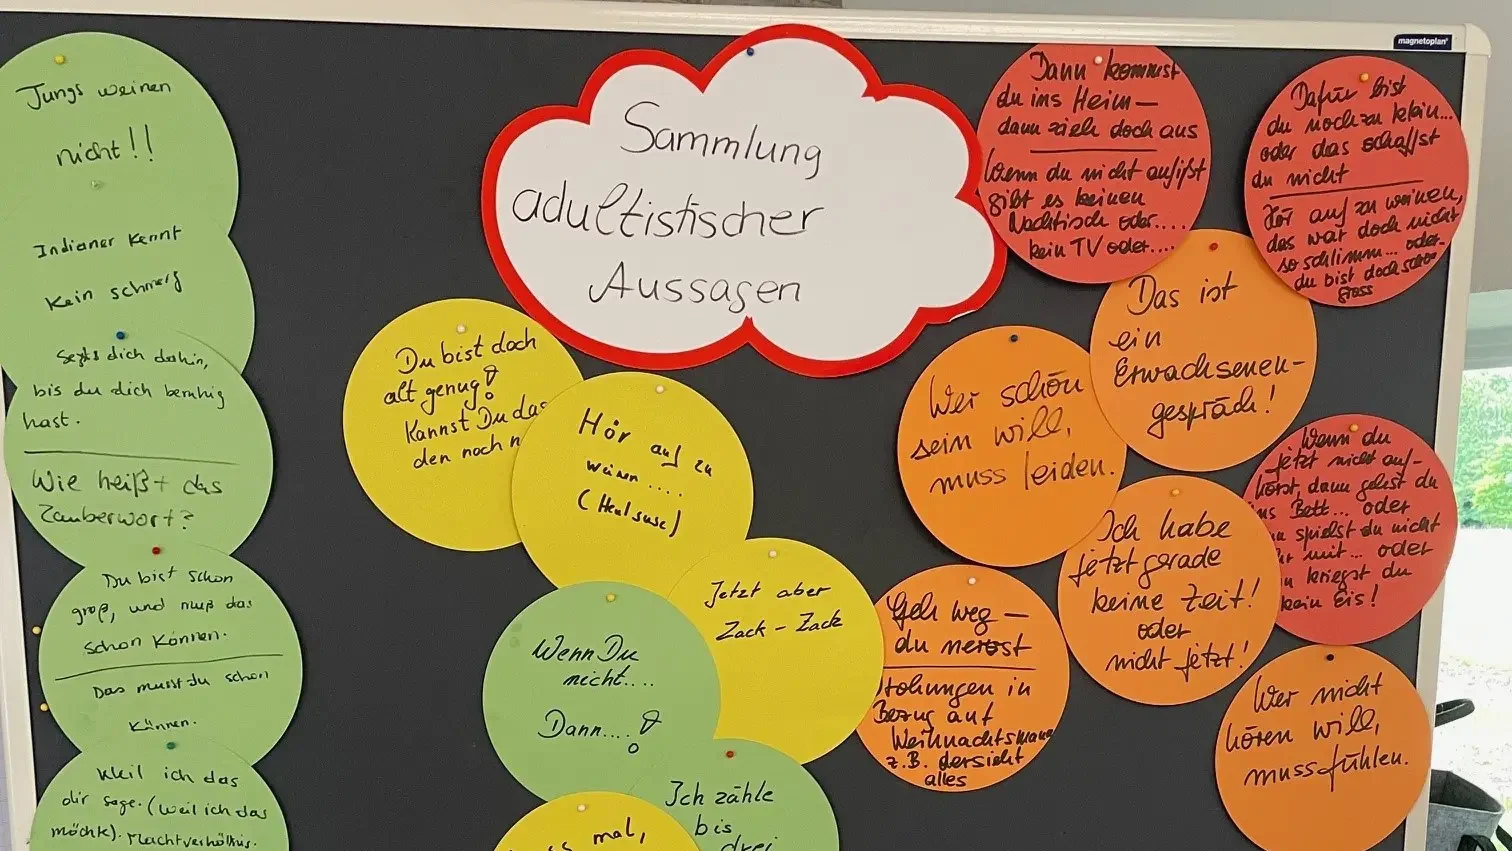 magnetoplan
Sammlung
adultistischer
Aussagen
Jungs weinen
nicht!!
Indianer kennt
kein schmerz
Setz dich dahin,
bis du dich beruhig
hast.
Wie heißt das
Zauberwort?
Du bist schon
groß, und muß das
schon können.
Das musst du schon
können.
Weil ich das
dir sage. (Weil ich das
möchte). Machtverhältnis.
Du bist doch
alt genug!
Kannst Du das
den noch n
Hör auf zu
weinen ....
(Heulsuse)
Jetzt aber
Zack - Zack
Wenn Du
nicht....
Dann....!
Ich zähle
bis
drei
mal,
Dann kommst
du ins Heim -
dann zieh doch aus
Wenn du nicht aufisst
gibt es keinen
Nachtisch oder....
kein TV oder....
Dafür bist
du noch zu klein...
oder das schaffst
du nicht
Hör auf zu weinen,
das war doch nicht
so schlimm... oder
du bist doch schon
gross
Das ist
ein
Erwachsenen-
gespräch!
Wer schön
sein will,
muss leiden.
Wenn du
jetzt nicht auf-
hörst, dann gehst du
ins Bett... oder
spielst du nicht
mit... oder
kriegst du
kein Eis!
Ich habe
jetzt gerade
keine Zeit!
oder
nicht jetzt!
Geh weg -
du nervst
Drohungen in
Bezug auf
Weihnachtsmann
z.B. der sieht
alles
Wer nicht
hören will,
muss fühlen.